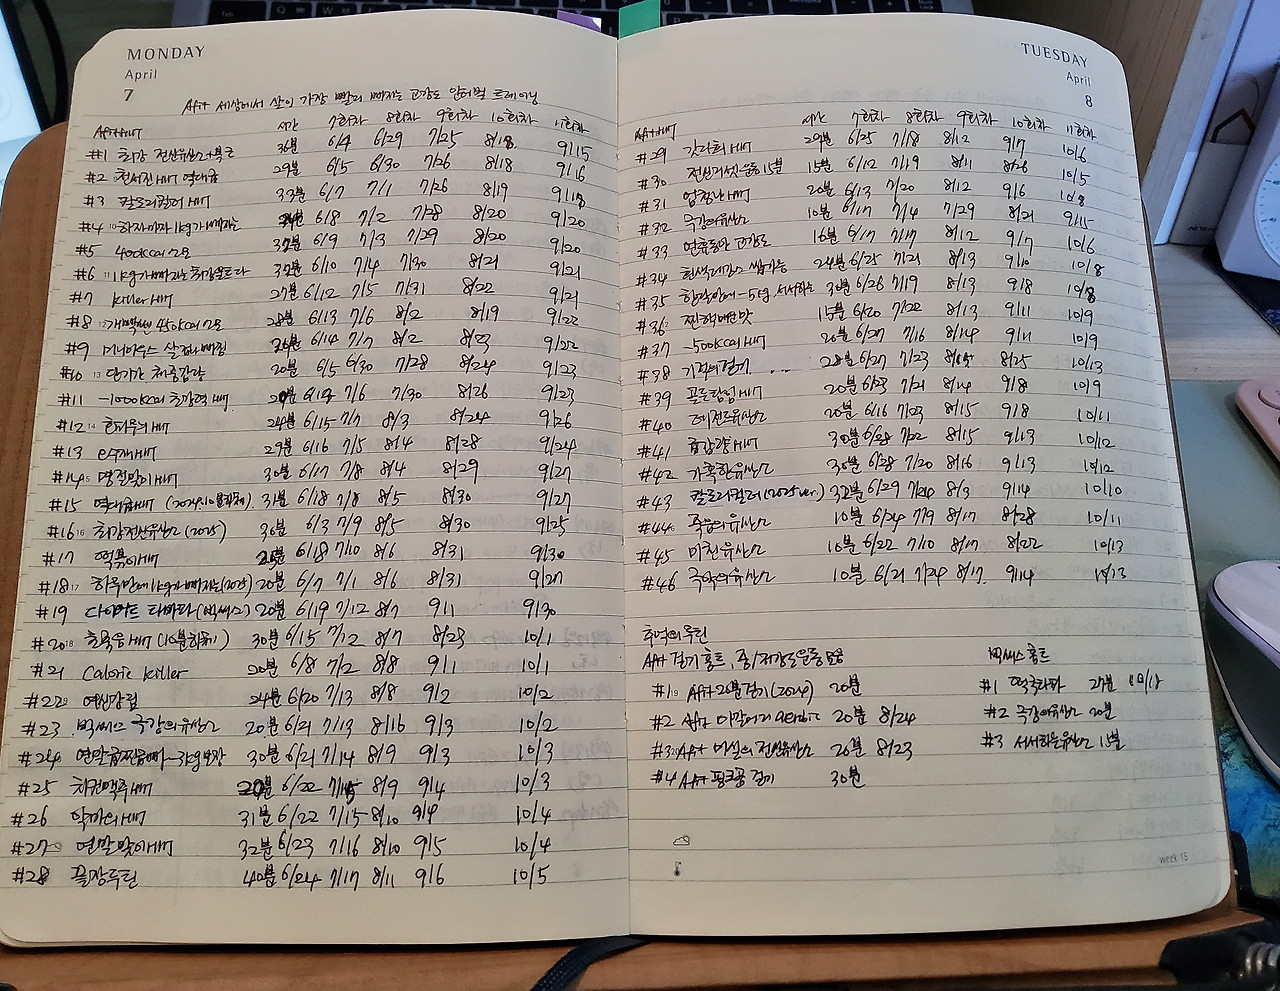 MONDAY
April
7
AFit 세상에서 살이 가장 빨리 빠지는 고강도 인터벌 트레이닝
AFit HIIT 시간 7회차 8회차 9회차 10회차 11회차
#1 최강 전신유산소+복근 30분 6/4 6/29 7/25 8/18 9/15
#2 천서진 HIIT 역대급 29분 6/5 6/30 7/26 8/18 9/16
#3 칼로리컬러 HIIT 33분 6/7 7/1 7/26 8/19 9/17
#4 하자마자 1kg가 빠지는 6/8 7/2 7/28 8/20 9/20
#5 400kcal 6/9 7/3 7/29 8/20 9/20
#6 11kg가 빠지는 최강 6/10 7/4 7/30 8/21 9/21
#7 killer HIIT 27분 6/12 7/5 7/31 8/22 9/21
#8 450kcal 28분 6/13 7/6 8/2 8/19 9/22
#9 미니마우스 살 6/14 7/7 8/2 8/23 9/22
#10 단기간 체중감량 20분 6/5 6/30 7/28 8/24 9/23
#11 -1000kcal 초강력 HIIT 7/6 7/30 8/26 9/23
#12 한파주의 HIIT 24분 6/15 7/7 8/3 8/24 9/26
#13 HIIT 29분 6/16 7/5 8/4 8/28 9/24
#14 명절맞이 HIIT 30분 6/17 7/8 8/4 8/29 9/27
#15 역대급 HIIT 31분 6/18 7/8 8/5 8/30 9/27
#16 최강전신유산소 (2025) 30분 6/3 7/9 8/5 8/30 9/25
#17 떡볶이 HIIT 6/18 7/10 8/6 8/31 9/30
#18 하루만에 1kg가 빠지는 (2025) 20분 6/7 7/1 8/6 8/31 9/27
#19 다이어트 타바타 (빅씨스) 20분 6/19 7/12 8/7 9/1 9/30
#20 초죽음 HIIT 30분 6/15 7/12 8/7 8/23 10/1
#21 Calorie killer 20분 6/8 7/2 8/8 9/1 10/1
#22 여신강림 24분 6/20 7/13 8/8 9/2 10/2
#23 빅씨스 극강의유산소 20분 6/21 7/13 8/16 9/3 10/2
#24 연말 급찐급빠 -3kg 보장 30분 6/21 7/14 8/9 9/3 10/3
#25 치킨맥주 HIIT 20분 6/22 7/15 8/9 9/4 10/3
#26 악마의 HIIT 31분 6/22 7/15 8/10 9/4 10/4
#27 연말맞이 HIIT 32분 6/23 7/16 8/10 9/5 10/4
#28 끝장루틴 40분 6/24 7/17 8/11 9/6 10/5
TUESDAY
April
8
AFit HIIT 시간 7회차 8회차 9회차 10회차 11회차
#29 HIIT 29분 6/25 7/18 8/12 9/7 10/6
#30 15분 15분 6/12 7/19 8/11 8/26 10/5
#31 엄청난 HIIT 20분 6/13 7/20 8/12 9/6 10/8
#32 극강의유산소 10분 6/17 7/4 7/29 8/21 9/15
#33 연휴동안 고강도 16분 6/17 7/17 8/12 9/7 10/6
#34 24분 6/25 7/21 8/13 9/10 10/8
#35 -5kg 서서하는 30분 6/26 7/19 8/13 9/8 10/8
#36 찐핵매운맛 15분 6/20 7/22 8/13 9/11 10/9
#37 -500kcal HIIT 20분 6/27 7/16 8/14 9/11 10/9
#38 기적의걷기 28분 6/27 7/23 8/15 8/25 10/13
#39 HIIT 20분 6/23 7/21 8/14 9/8 10/9
#40 유산소 20분 6/16 7/23 8/15 9/8 10/11
#41 HIIT 30분 6/28 7/22 8/15 9/13 10/12
#42 가혹한유산소 30분 6/28 7/20 8/16 9/13 10/12
#43 칼로리컬러 (2025 ver.) 32분 6/29 7/24 8/3 9/14 10/10
#44 죽음의유산소 10분 6/24 7/9 8/17 8/28 10/11
#45 미친유산소 10분 6/22 7/10 8/17 8/22 10/13
#46 극악의유산소 10분 6/21 7/24 8/17 9/14 10/13
추억의루틴
AFit 걷기 홈트, 중/저강도운동 모음 빅씨스 홈트
#1 AFit 20분 걷기 (2024) 20분 #1 27분 10/18
#2 AFit aerobic 20분 8/24 #2 극강의유산소 20분
#3 AFit 전신유산소 20분 8/23 #3 서서하는유산소 15분
#4 AFit 핑크퐁 걷기 30분
week 15